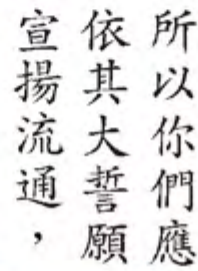 所以你們應
依其大誓願
宣揚流通，